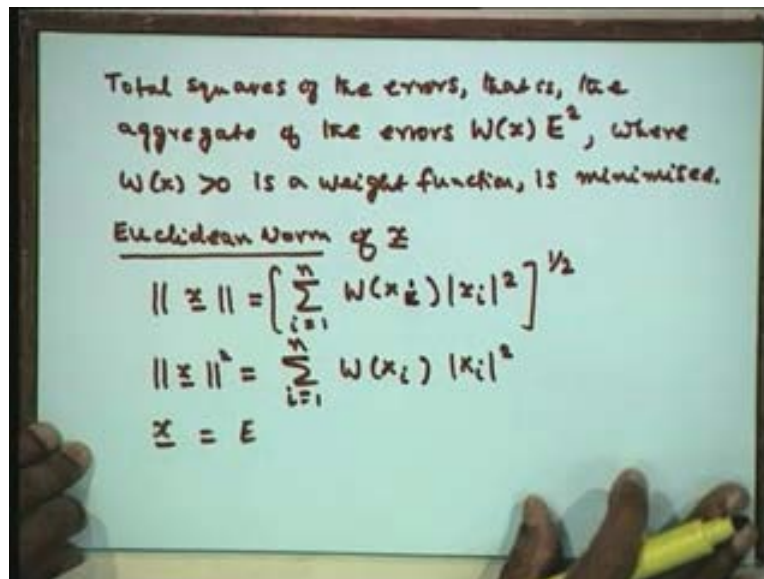 Total squares of the errors, that is, the
aggregate of the errors W(x) E², where
W(x) >0 is a weight function, is minimised.
Euclidean Norm of x
|| x || = [ ∑ⁿᵢ₌₁ W(xᵢ) |xᵢ|² ]^1/2
|| x ||² = ∑ⁿᵢ₌₁ W(xᵢ) |xᵢ|²
x = E